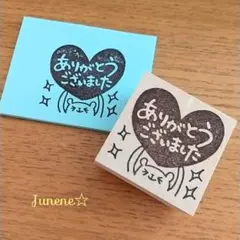 ありがとう
ございました
ありがとう
ございました
Junene☆